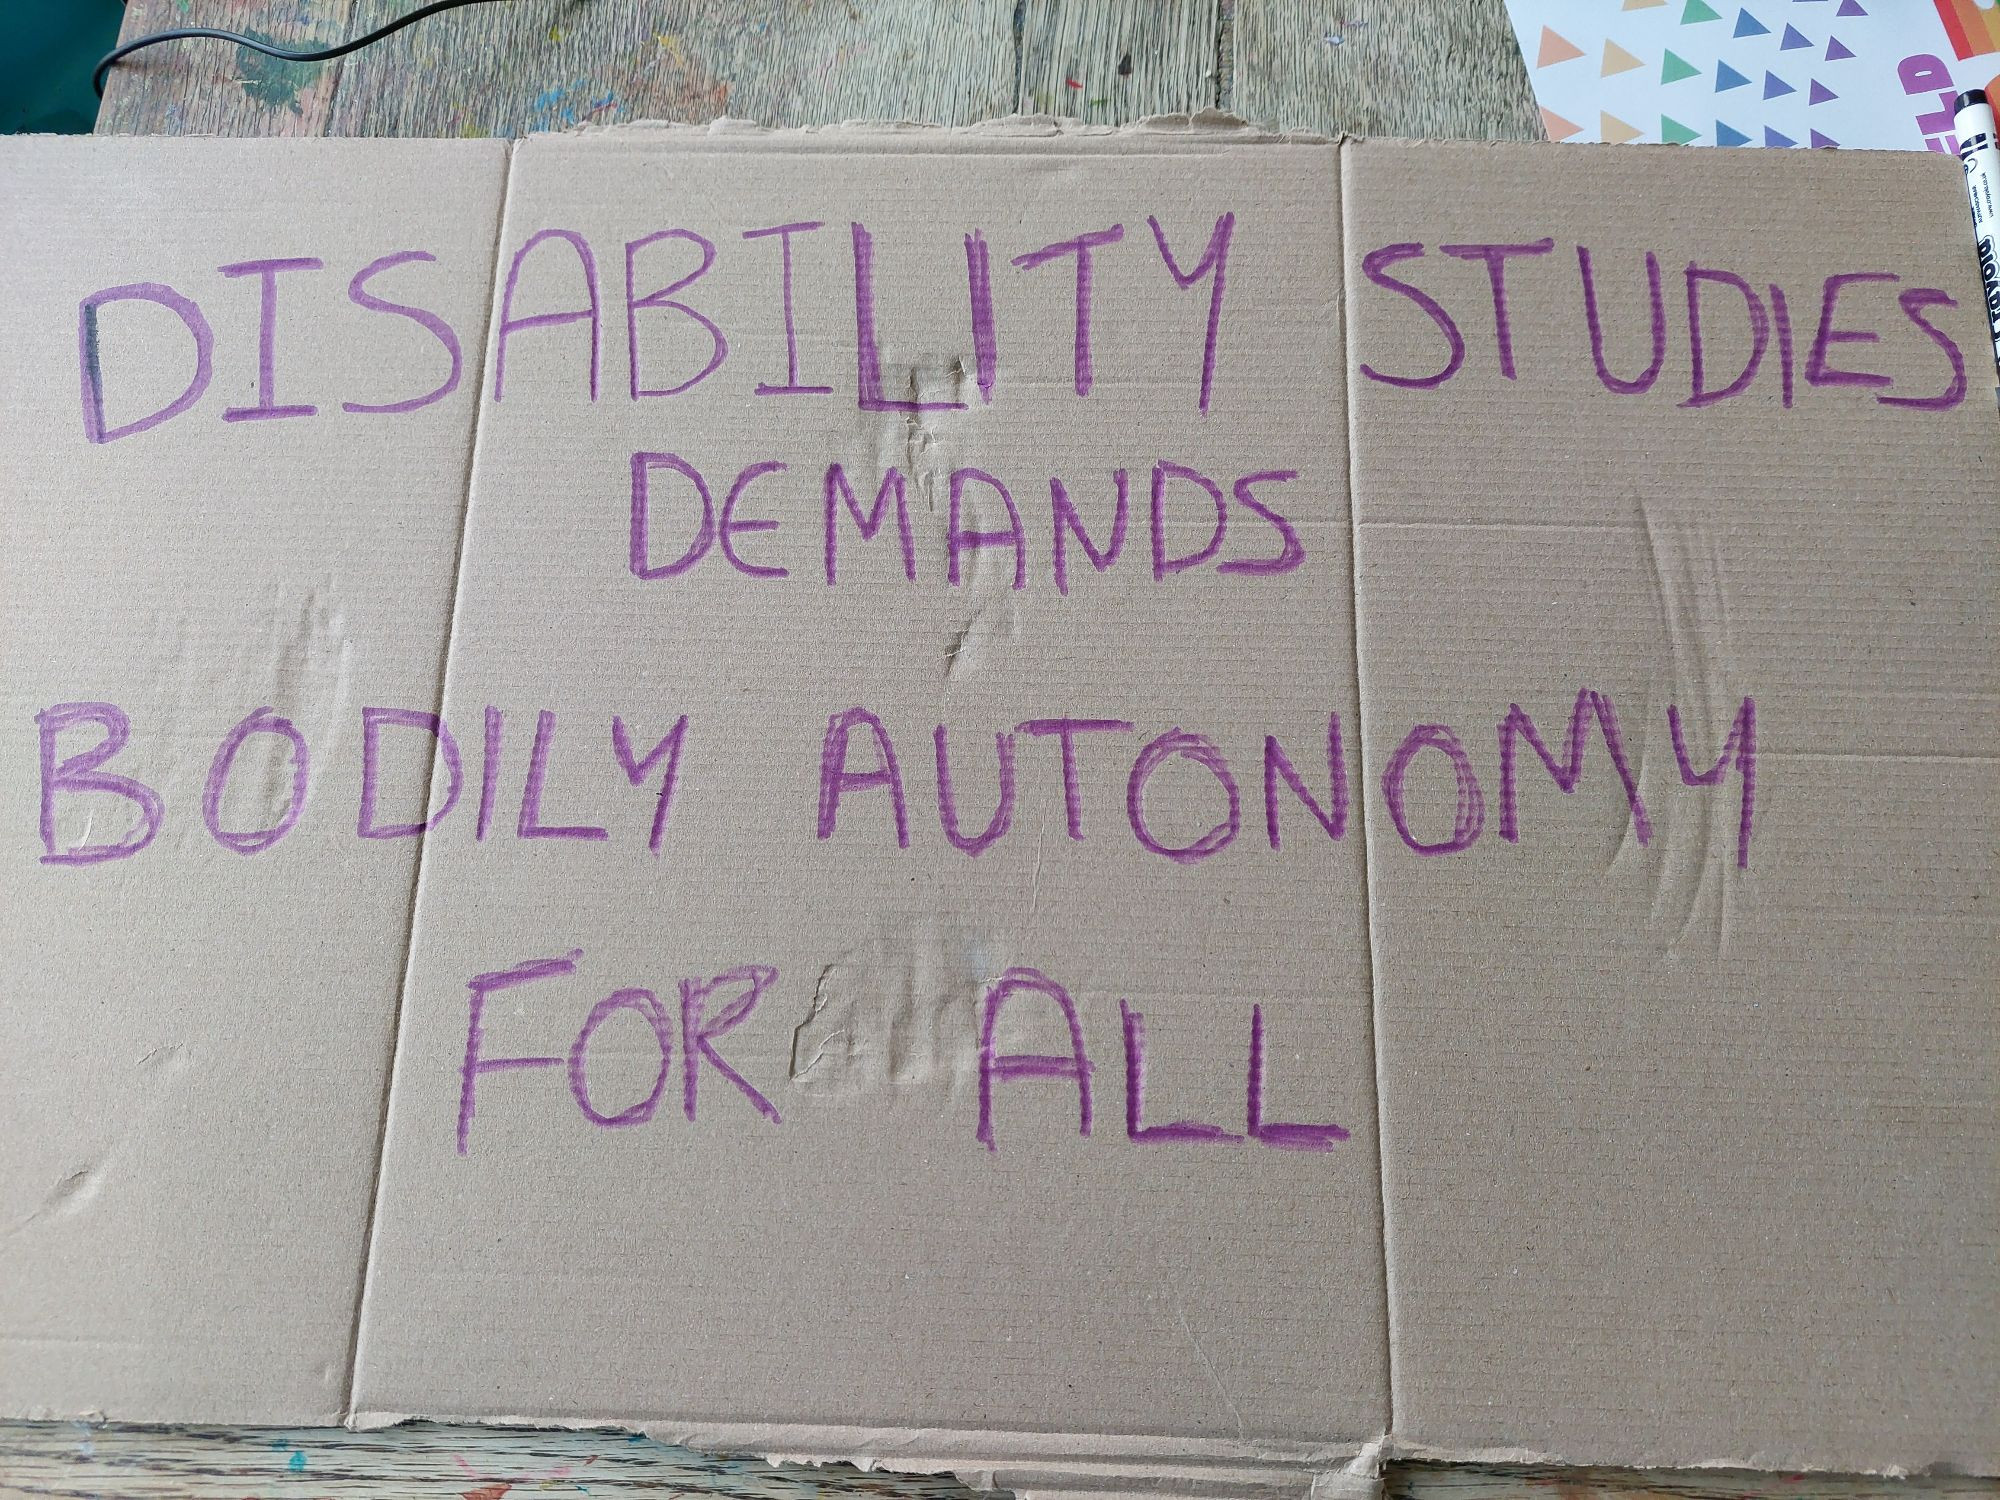 DISABILITY STUDIES
DEMANDS
BODILY AUTONOMY
FOR ALL